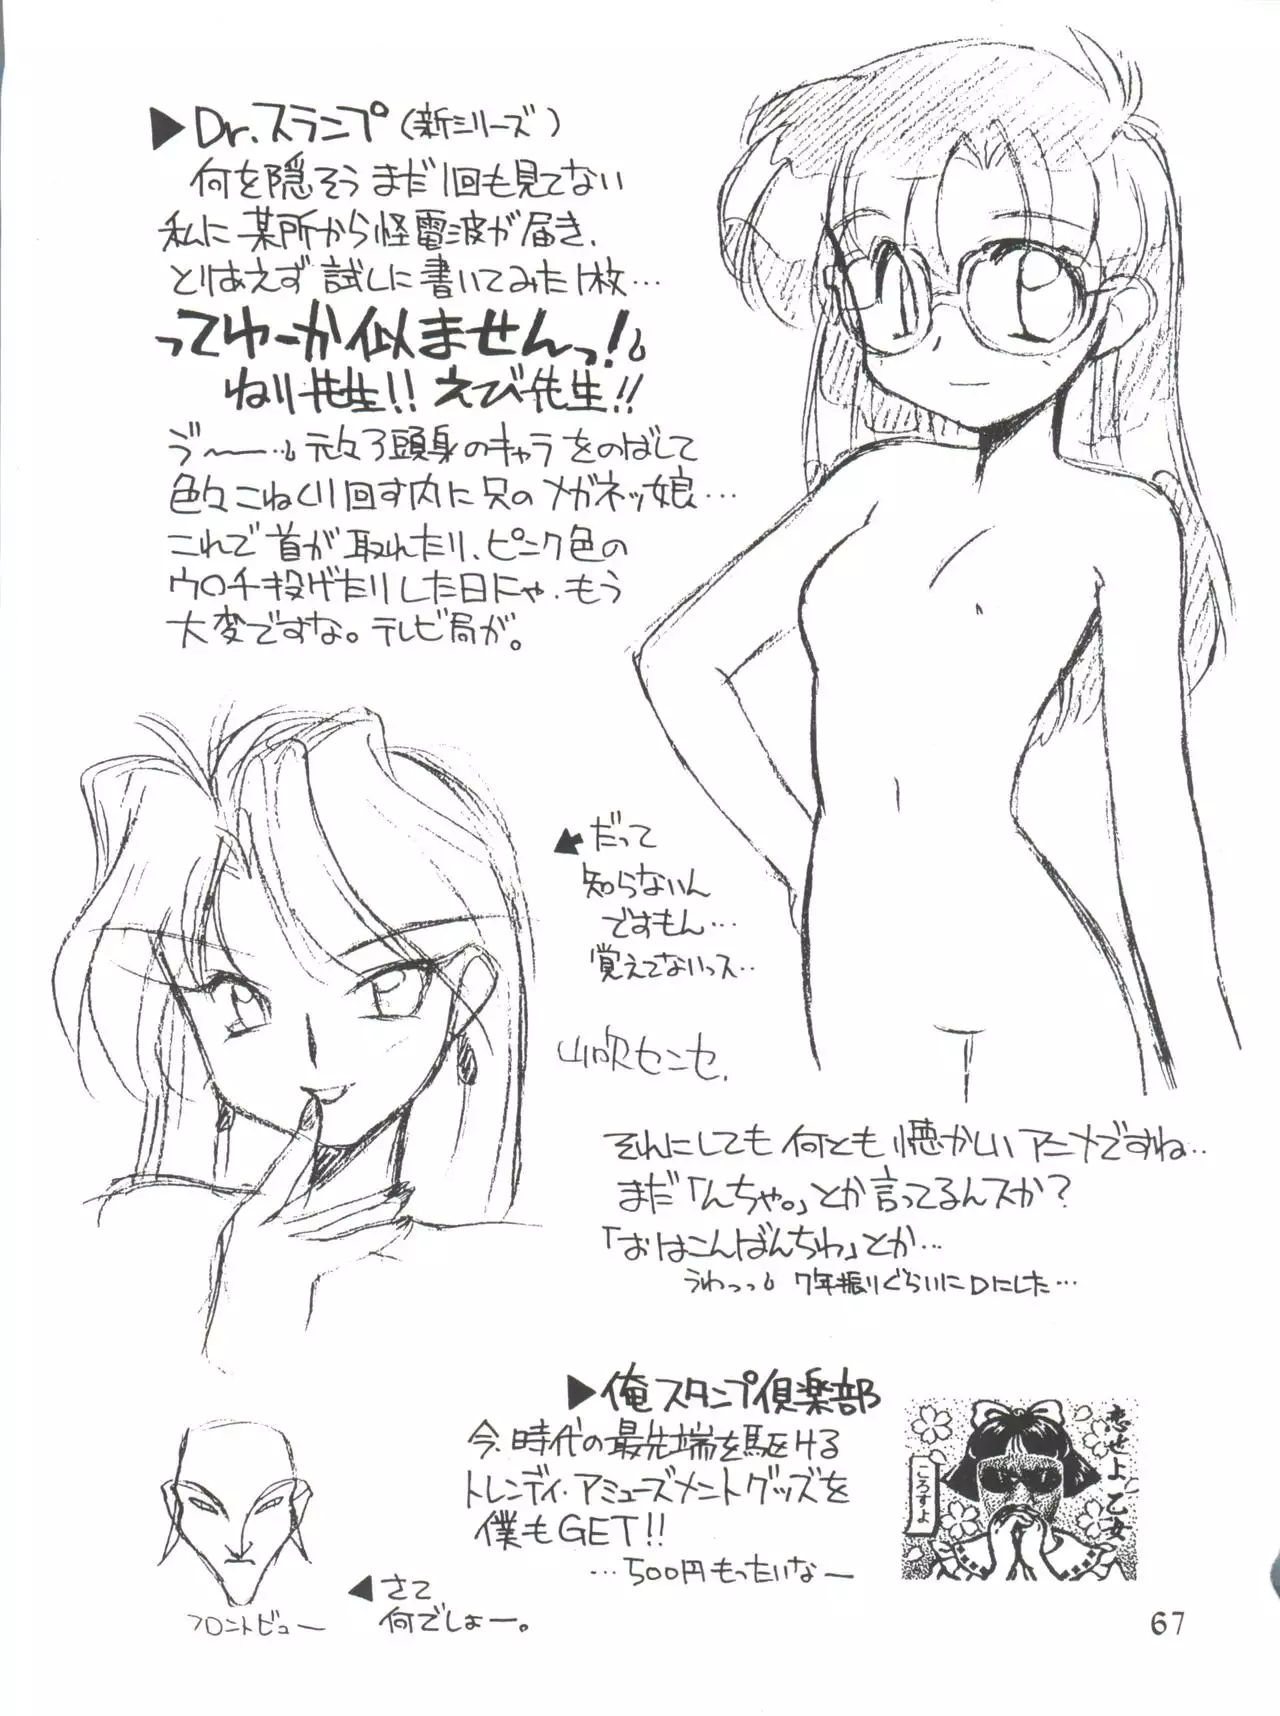 ▶Dr.スランプ(新シリーズ)
何を隠そうまだ1回も見てない
私に某所から怪電波が届き、
とりあえず試しに書いてみた1枚…
ってゆーか似ませんっ!
ねり先生!!えび先生!!
元々3頭身のキャラをのばして
色々こねくり回す内に只のメガネッ娘…
これで首が取れたり、ピンク色の
ウ○チ投げたりした日にゃ、もう
大変ですな。テレビ局が。
だって
知らないん
ですもん…
覚えてないっス..
山吹センセ.
そんにしても何とも懐かしいアニメですね..
まだ「んちゃ。」とか言ってるんスか?
「おはこんばんちわ」とか…
うわっっ 7年振りぐらいにDにした…
▶俺スタンプ倶楽部
今、時代の最先端を駆ける
トレンディ・アミューズメントグッズを
僕もGET!!
…500円もったいなー
恋せよ乙女
ころすよ
◀さて
何でしょー。
フロントビュー
67